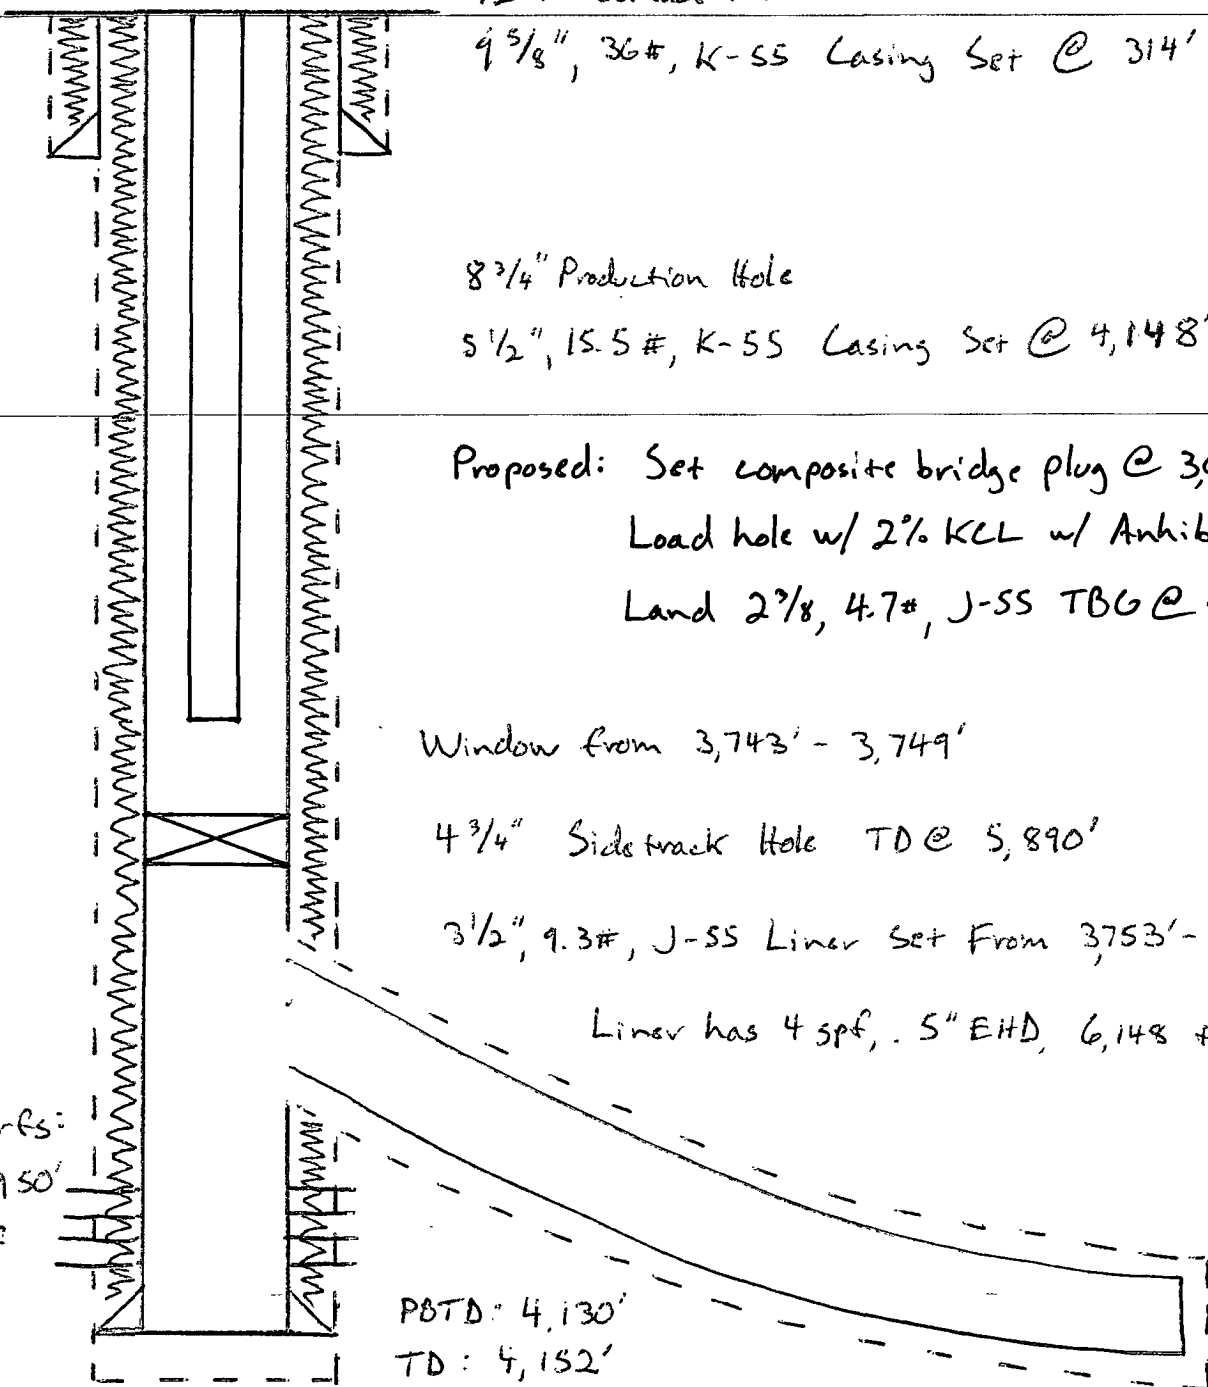 9 5/8", 36#, K-55 Casing Set @ 314'
8 3/4" Production Hole
5 1/2", 15.5#, K-55 Casing Set @ 4,148'
Proposed: Set composite bridge plug @
Load hole w/ 2% KCL w/
Land 2 3/8, 4.7#, J-55 TBG @
Window from 3,743' - 3,749'
4 3/4" Sidetrack Hole TD @ 5,890'
3 1/2", 9.3#, J-55 Liner Set From 3,753' -
Liner has 4 spf, .5" EHD, 6,148
PBTD: 4,130'
TD: 4,152'